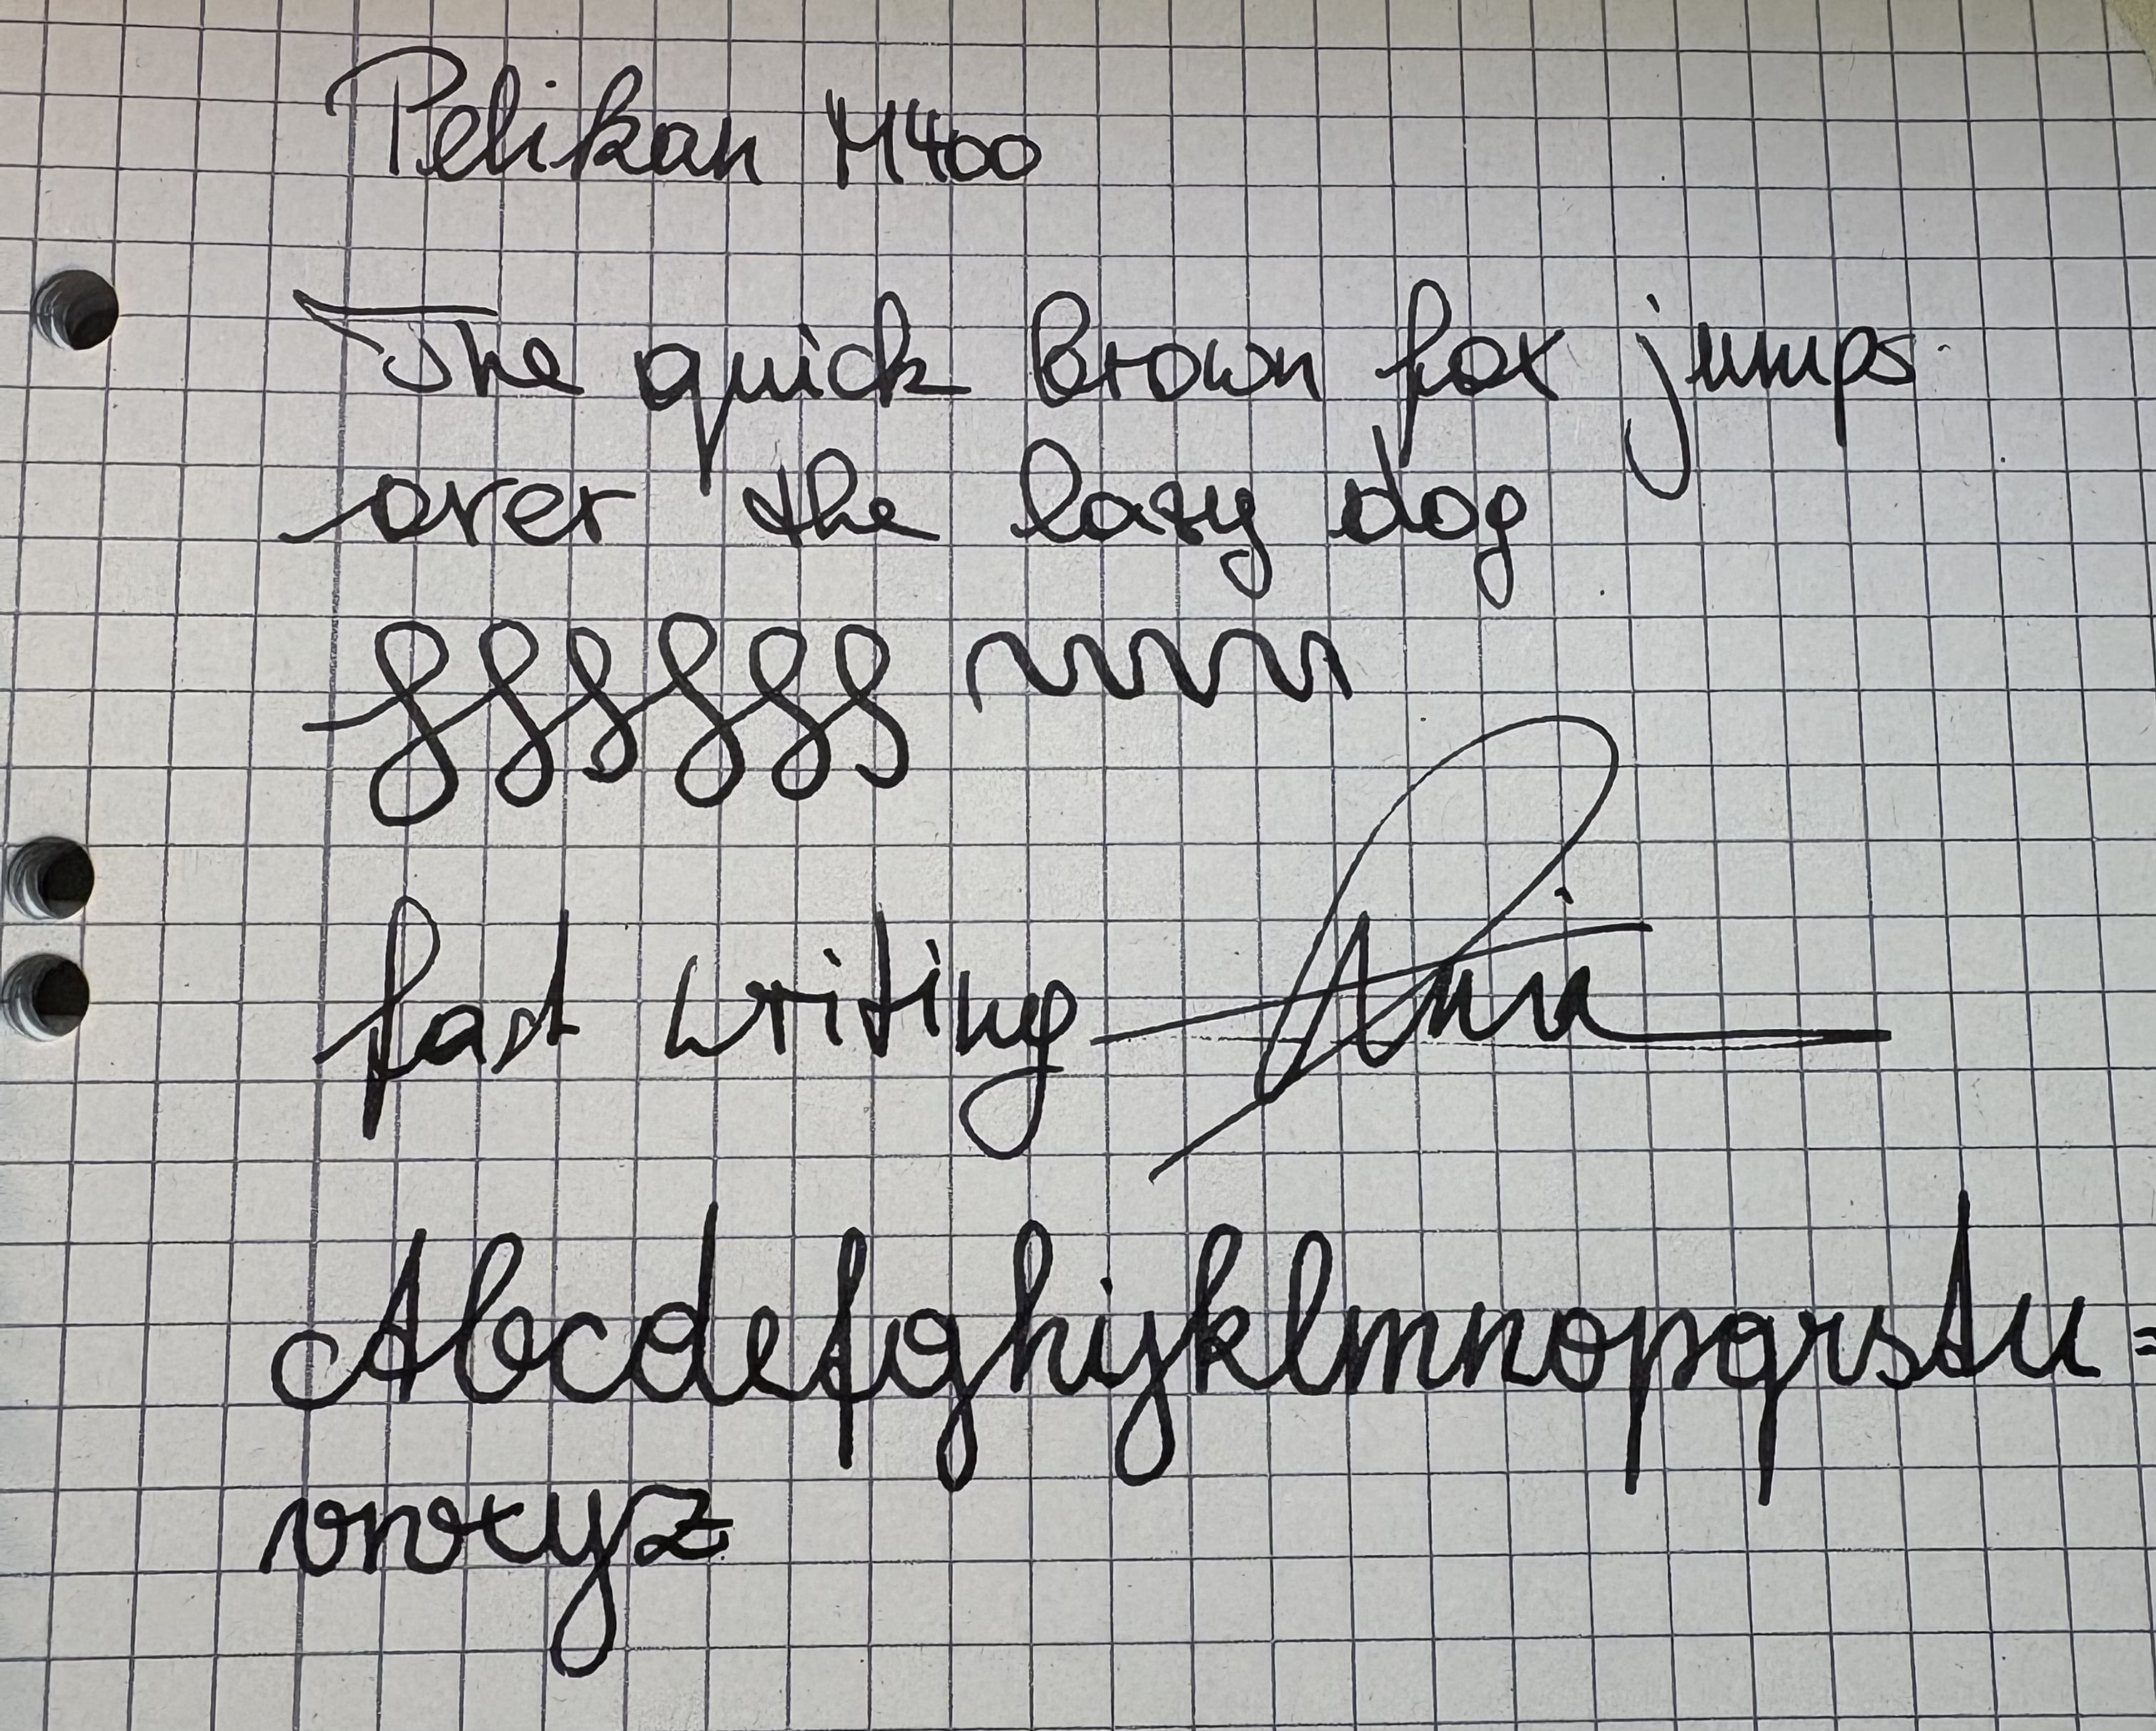 Pelikan M400
The quick brown fox jumps
over the lazy dog
fast writing
Abcdefghijklmnopqrstu=
vwxyz